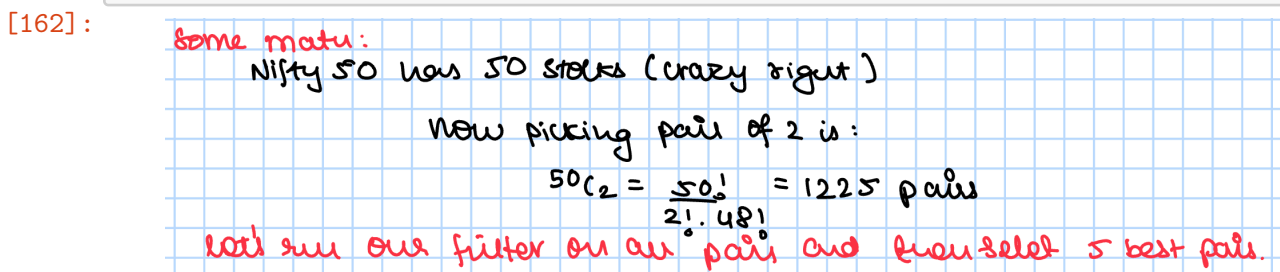 [162]:
Some math:
Nifty 50 has 50 stocks (crazy right)
Now picking pair of 2 is:
⁵⁰C₂ = 50! / 2!.48! = 1225 pairs
Let's run our filter on all pairs and then select 5 best pairs.